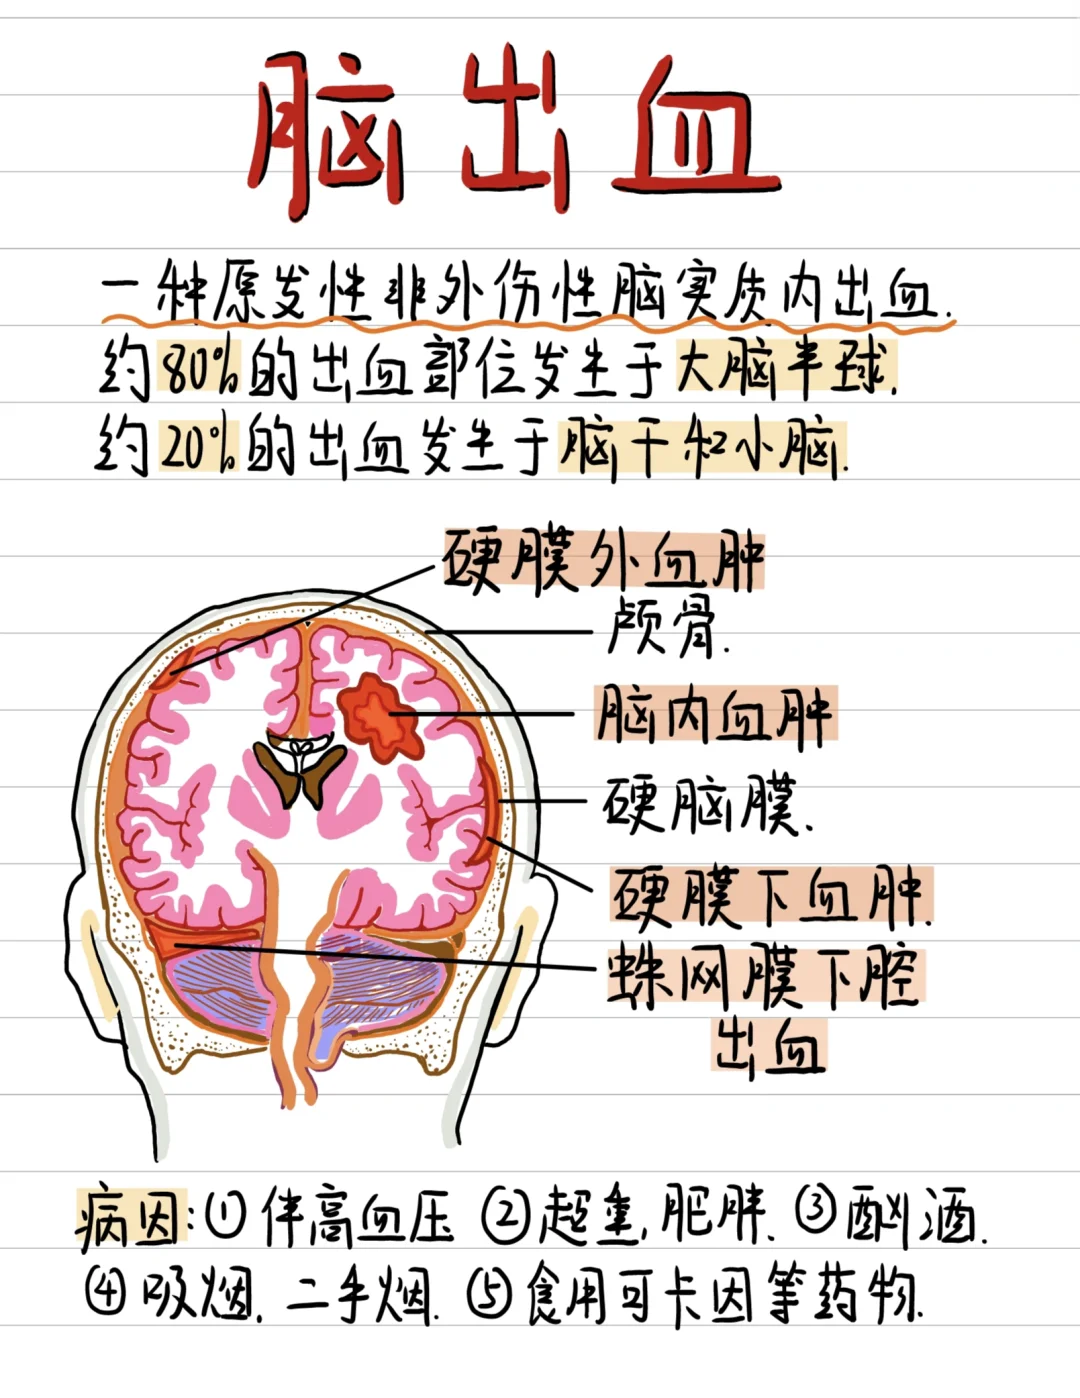 脑出血
一种原发性非外伤性脑实质内出血.
约80%的出血部位发生于大脑半球.
约20%的出血发生于脑干和小脑.
硬膜外血肿
颅骨.
脑内血肿
硬脑膜.
硬膜下血肿.
蛛网膜下腔
出血
病因:①伴高血压 ②超重,肥胖. ③酗酒.
④吸烟.二手烟. ⑤食用可卡因等药物.